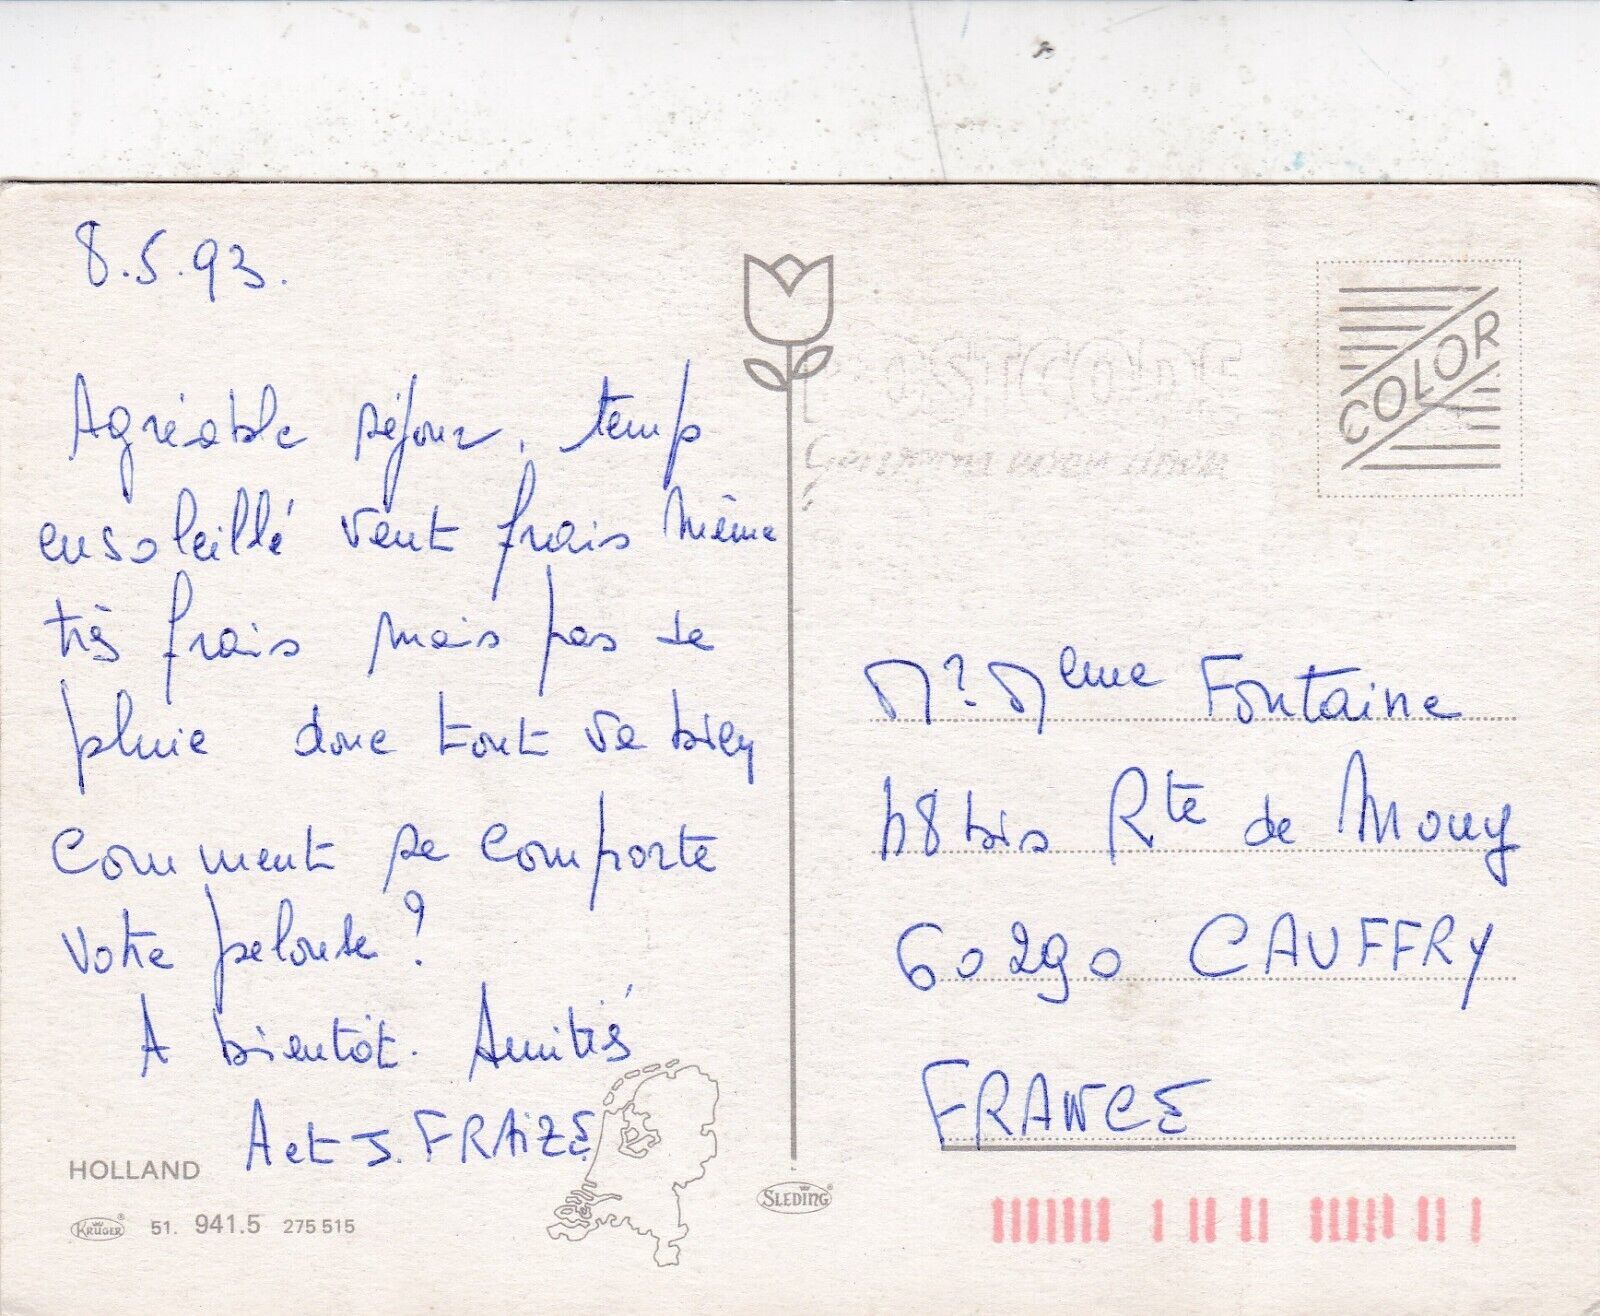 8.5.93.
Agréable séjour, temps
ensoleillé vent frais même
très frais mais pas de
pluie donc tout va bien
Comment se comporte
votre pelouse ?
A bientôt. Amitiés
A et J. FRAIZE
HOLLAND
KRÜGER 51. 941.5 275 515
SLEDING
COLOR
POSTCODE
Mr Meme Fontaine
48 bis Rte de Mouy
60290 CAUFFRY
FRANCE